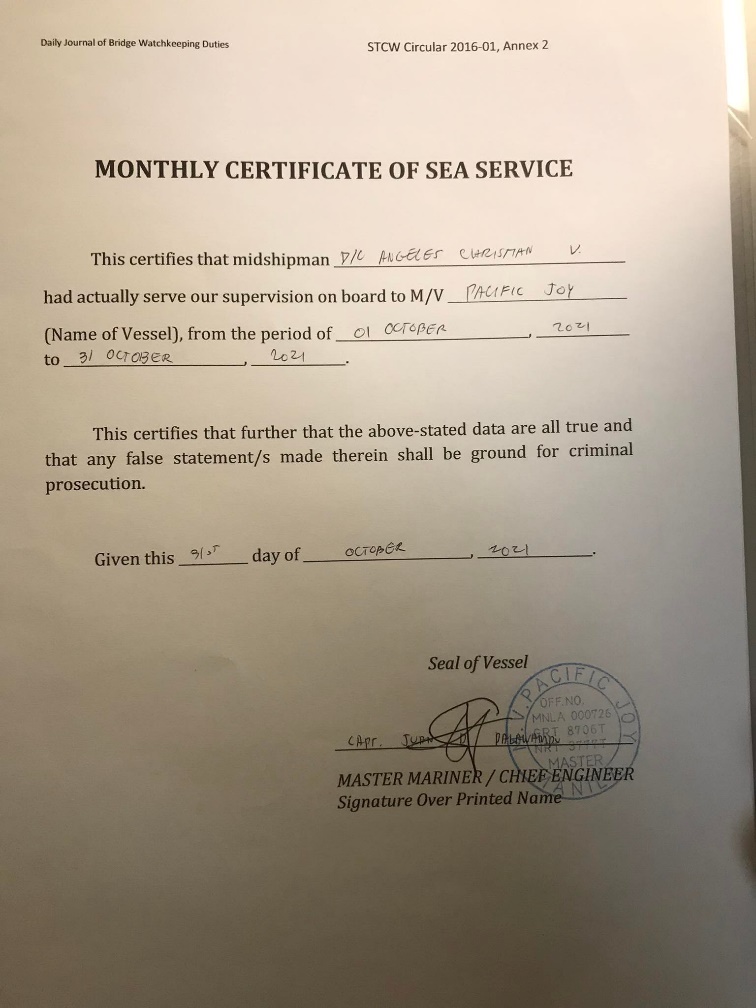 Daily Journal of Bridge Watchkeeping Duties
STCW Circular 2016-01, Annex 2
MONTHLY CERTIFICATE OF SEA SERVICE
This certifies that midshipman D/C ANGELES CHRISTIAN V.
had actually serve our supervision on board to M/V PACIFIC JOY
(Name of Vessel), from the period of 01 OCTOBER, 2021
to 31 OCTOBER, 2021.
This certifies that further that the above-stated data are all true and
that any false statement/s made therein shall be ground for criminal
prosecution.
Given this 31ST day of OCTOBER, 2021.
Seal of Vessel
M.V. PACIFIC JOY
OFF.NO.
MNLA 000726
GRT 8706T
NRT
MASTER
MANILA
CAPT.
MASTER MARINER / CHIEF ENGINEER
Signature Over Printed Name